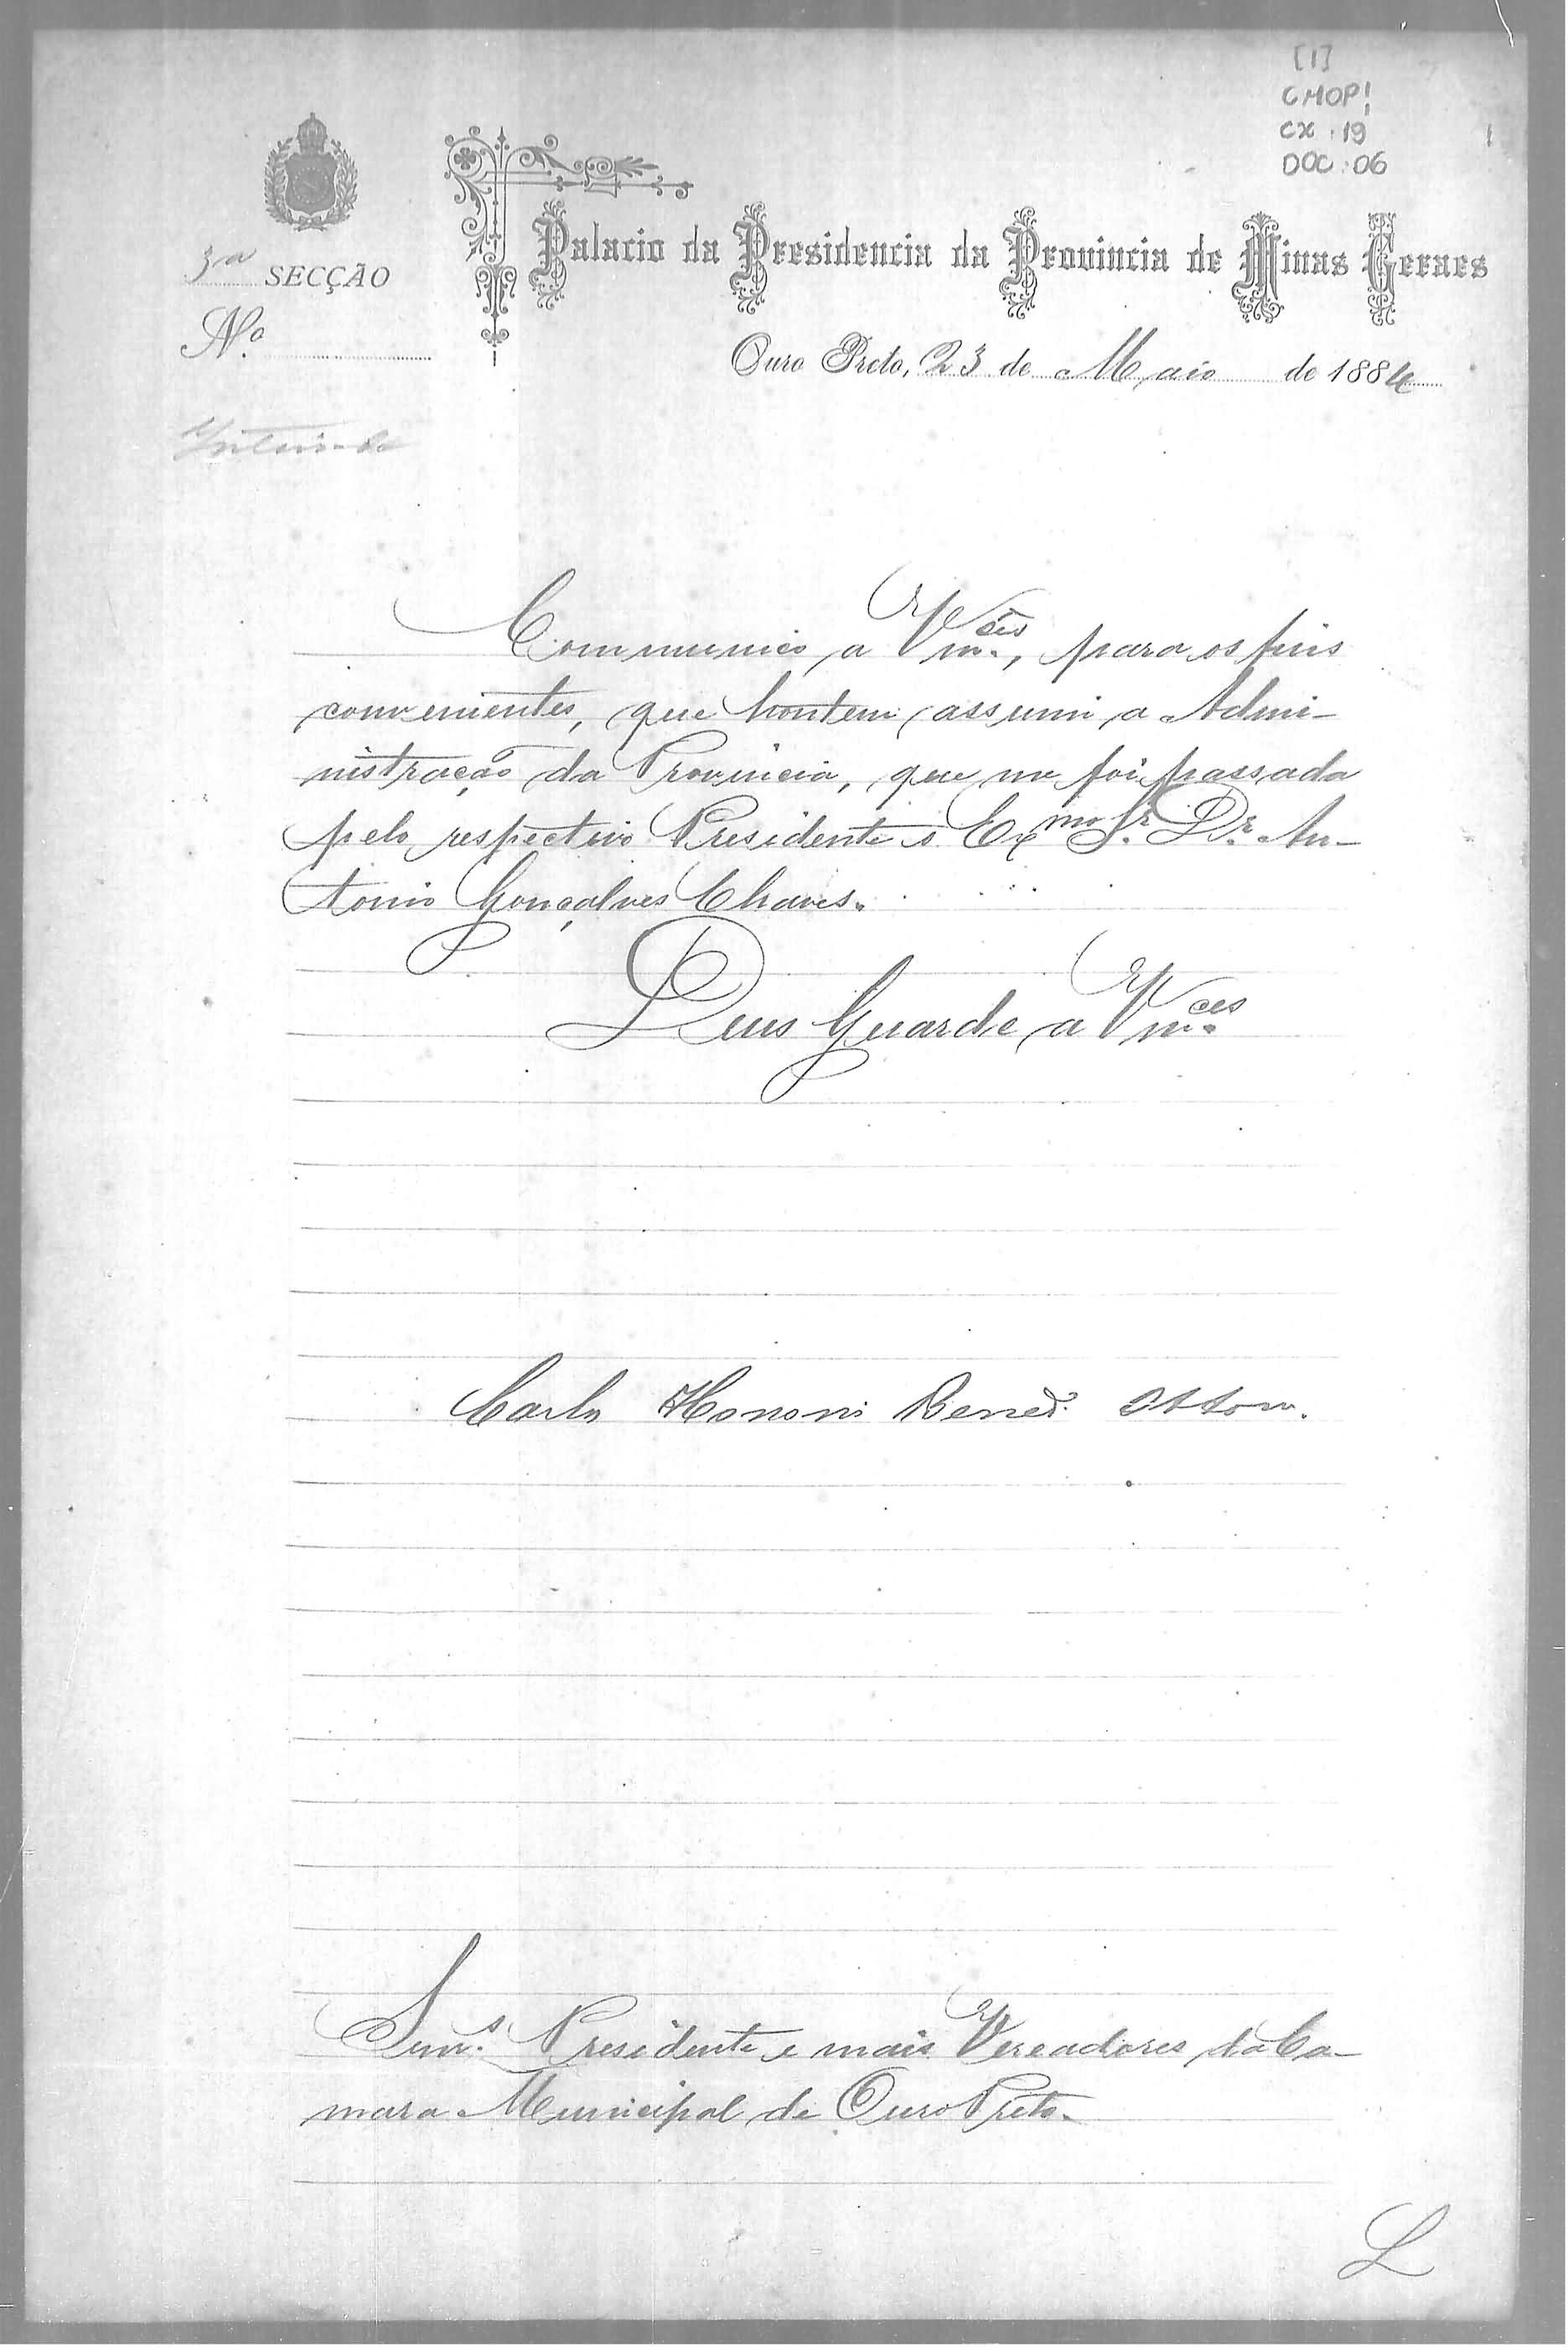 [1]
CMOP!
CX: 19
DOC: 06
3ª SECÇÃO
Palacio da Presidencia da Provincia de Minas Geraes
Nº
Ouro Preto, 23 de Maio de 1884
Inteirada
Communico a Vmcês, para os fins
convenientes, que hontem assumi a Admi-
nistração da Provincia, que me foi passada
pelo respectivo Presidente o Exmo Sr. Dr. An-
tonio Gonçalves Chaves.
Deus Guarde a Vmces
Carlos Honorio Bened. Ottoni.
Snrs. Presidente e mais Vereadores da Ca-
mara Municipal de Ouro Preto.
L